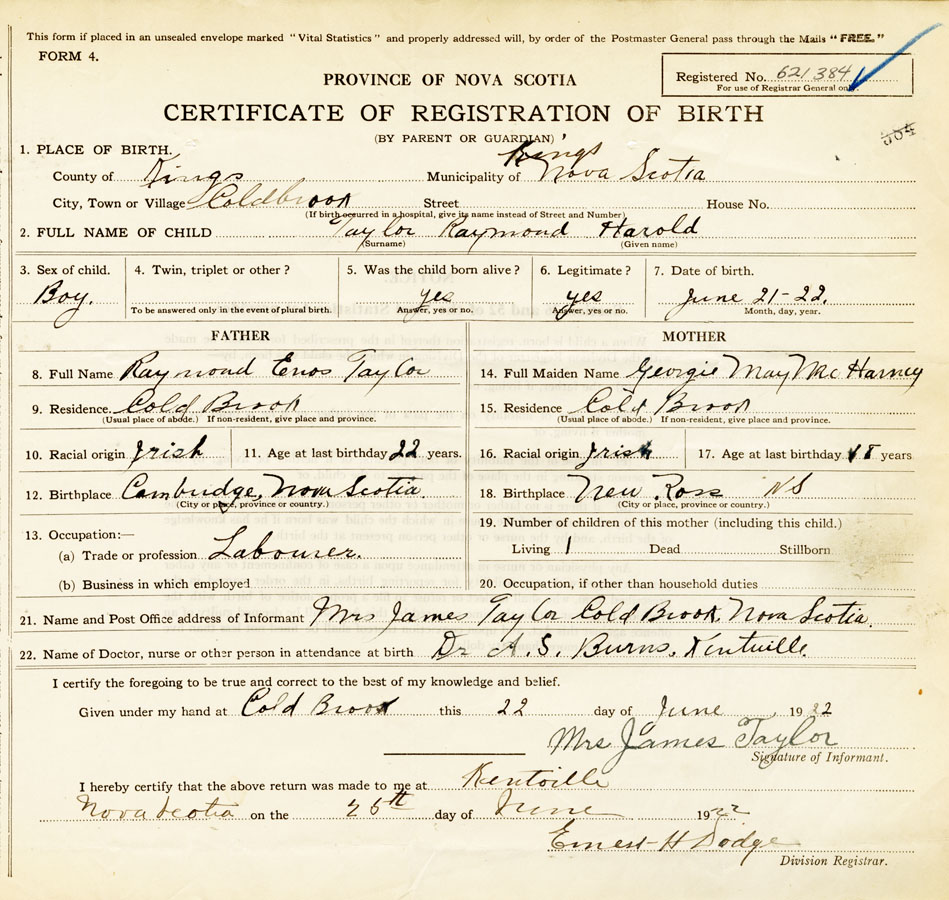 This form if placed in an unsealed envelope marked "Vital Statistics" and properly addressed will, by order of the Postmaster General pass through the Mails "FREE."
FORM 4.
Registered No. 621384
For use of Registrar General only.
PROVINCE OF NOVA SCOTIA
CERTIFICATE OF REGISTRATION OF BIRTH
(BY PARENT OR GUARDIAN)
1. PLACE OF BIRTH.
Kings
County of Kings Municipality of Nova Scotia
City, Town or Village Coldbrook Street House No.
(If birth occurred in a hospital, give its name instead of Street and Number)
2. FULL NAME OF CHILD Taylor Raymond Harold
(Surname) (Given name)
3. Sex of child. 4. Twin, triplet or other? 5. Was the child born alive? 6. Legitimate? 7. Date of birth.
Boy. yes yes June 21-22.
To be answered only in the event of plural birth. Answer, yes or no. Answer, yes or no. Month, day, year.
FATHER MOTHER
8. Full Name Raymond Enos Taylor 14. Full Maiden Name Georgie May McHarney
9. Residence. Cold Brook 15. Residence Cold Brook
(Usual place of abode.) If non-resident, give place and province. (Usual place of abode.) If non-resident, give place and province.
10. Racial origin Irish 11. Age at last birthday 22 years. 16. Racial origin Irish 17. Age at last birthday 18 years
12. Birthplace Cambridge, Nova Scotia. 18. Birthplace New Ross NS
(City or place, province or country.) (City or place, province or country.)
13. Occupation:— 19. Number of children of this mother (including this child.)
(a) Trade or profession Labourer. Living 1 Dead Stillborn
(b) Business in which employed 20. Occupation, if other than household duties
21. Name and Post Office address of Informant Mrs James Taylor Cold Brook, Nova Scotia.
22. Name of Doctor, nurse or other person in attendance at birth Dr A. S. Burns. Kentville
I certify the foregoing to be true and correct to the best of my knowledge and belief.
Given under my hand at Cold Brook this 22 day of June 1922
Mrs James Taylor
Signature of Informant.
I hereby certify that the above return was made to me at Kentville
Nova Scotia on the 25th day of June 1922
Ernest H Dodge
Division Registrar.